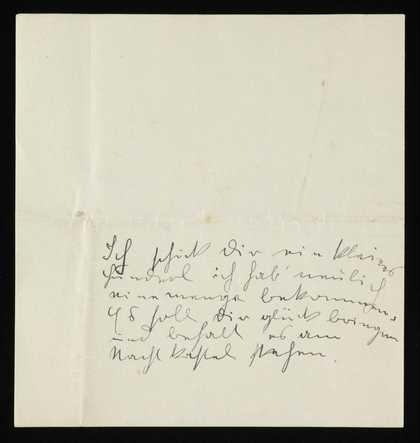 Ich schick Dir ein kleines
Hunderl ich hab' neulich
eine menge bekommen.
Es soll Dir glück bringen
und behalt es am
Nachtkastel stehen.